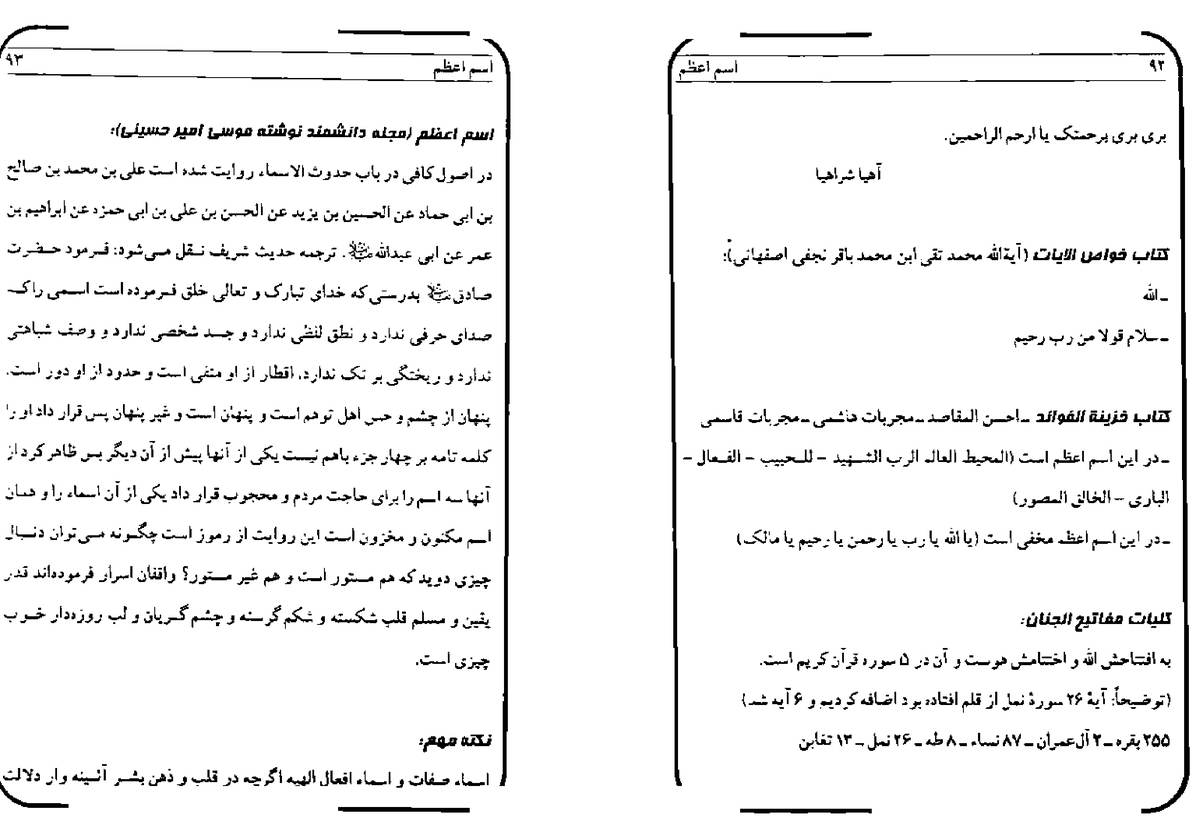 ۹۲
اسم اعظم
بری بری برحمتک یا ارحم الراحمین.
آهیا شراهیا
کتاب خواص الایات (آیةالله محمد تقی ابن محمد باقر نجفی اصفهانی):
ـ الله
ـ سلام قولا من رب رحیم
کتاب خزینة الفوائد ـ احسن المقاصد ـ مجربات هاشمی ـ مجربات قاسمی
ـ در این اسم اعظم است (المحیط العالم الرب الشهید – للحبیب – الفعال –
الباری – الخالق المصور)
ـ در این اسم اعظم مخفی است (یا الله یا رب یا رحمن یا رحیم یا مالک)
کلیات مفاتیح الجنان:
به افتتاحش الله و اختتامش هوست و آن در ۵ سوره قرآن کریم است.
(توضیحاً: آیهٔ ۲۶ سورهٔ نمل از قلم افتاده بود اضافه کردیم و ۶ آیه شد)
۲۵۵ بقره ـ ۲ آل‌عمران ـ ۸۷ نساء ـ ۸ طه ـ ۲۶ نمل ـ ۱۳ تغابن
۹۳
اسم اعظم
اسم اعظم (مجله دانشمند نوشته موسی امیر حسینی):
در اصول کافی در باب حدوث الاسماء روایت شده است علی بن محمد بن صالح
بن ابی حماد عن الحسین بن یزید عن الحسن بن علی بن ابی حمزه عن ابراهیم بن
عمر عن ابی عبدالله. ترجمه حدیث شریف نقل می‌شود: فرمود حضرت
صادق بدرستی که خدای تبارک و تعالی خلق فرموده است اسمی را که
صدای حرفی ندارد و نطق لفظی ندارد و جسد شخصی ندارد و وصف شباهتی
ندارد و ریختگی بر تک ندارد، اقطار از او منفی است و حدود از او دور است.
پنهان از چشم و حس اهل توهم است و پنهان است و غیر پنهان پس قرار داد او را
کلمه تامه بر چهار جزء باهم نیست یکی از آنها پیش از آن دیگر پس ظاهر کرد از
آنها سه اسم را برای حاجت مردم و محجوب قرار داد یکی از آن اسماء را و همان
اسم مکنون و مخزون است این روایت از رموز است چگونه می‌توان دنبال
چیزی دوید که هم مستور است و هم غیر مستور؟ واقفان اسرار فرموده‌اند قدر
یقین و مسلم قلب شکسته و شکم گرسنه و چشم گریان و لب روزه‌دار خوب
چیزی است.
نکته مهم:
اسماء صفات و اسماء افعال الهیه اگرچه در قلب و ذهن بشر آئینه وار دلالت